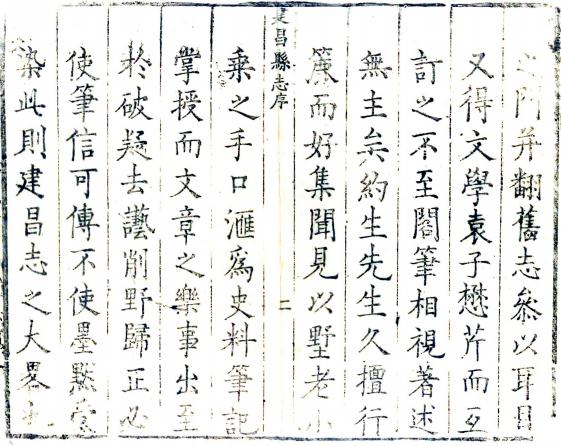 之門并翻舊志參以耳目
又得文學袁子懋芹而互
訂之不至閣筆相視著述
無主矣約生先生久擅行
篋而好集聞見以墅老小
建昌縣志序
二
乘之手口滙爲史料筆記
掌授而文章之樂事出至
於破疑去謊削野歸正必
使筆信可傳不使墨點
染此則建昌志之大畧